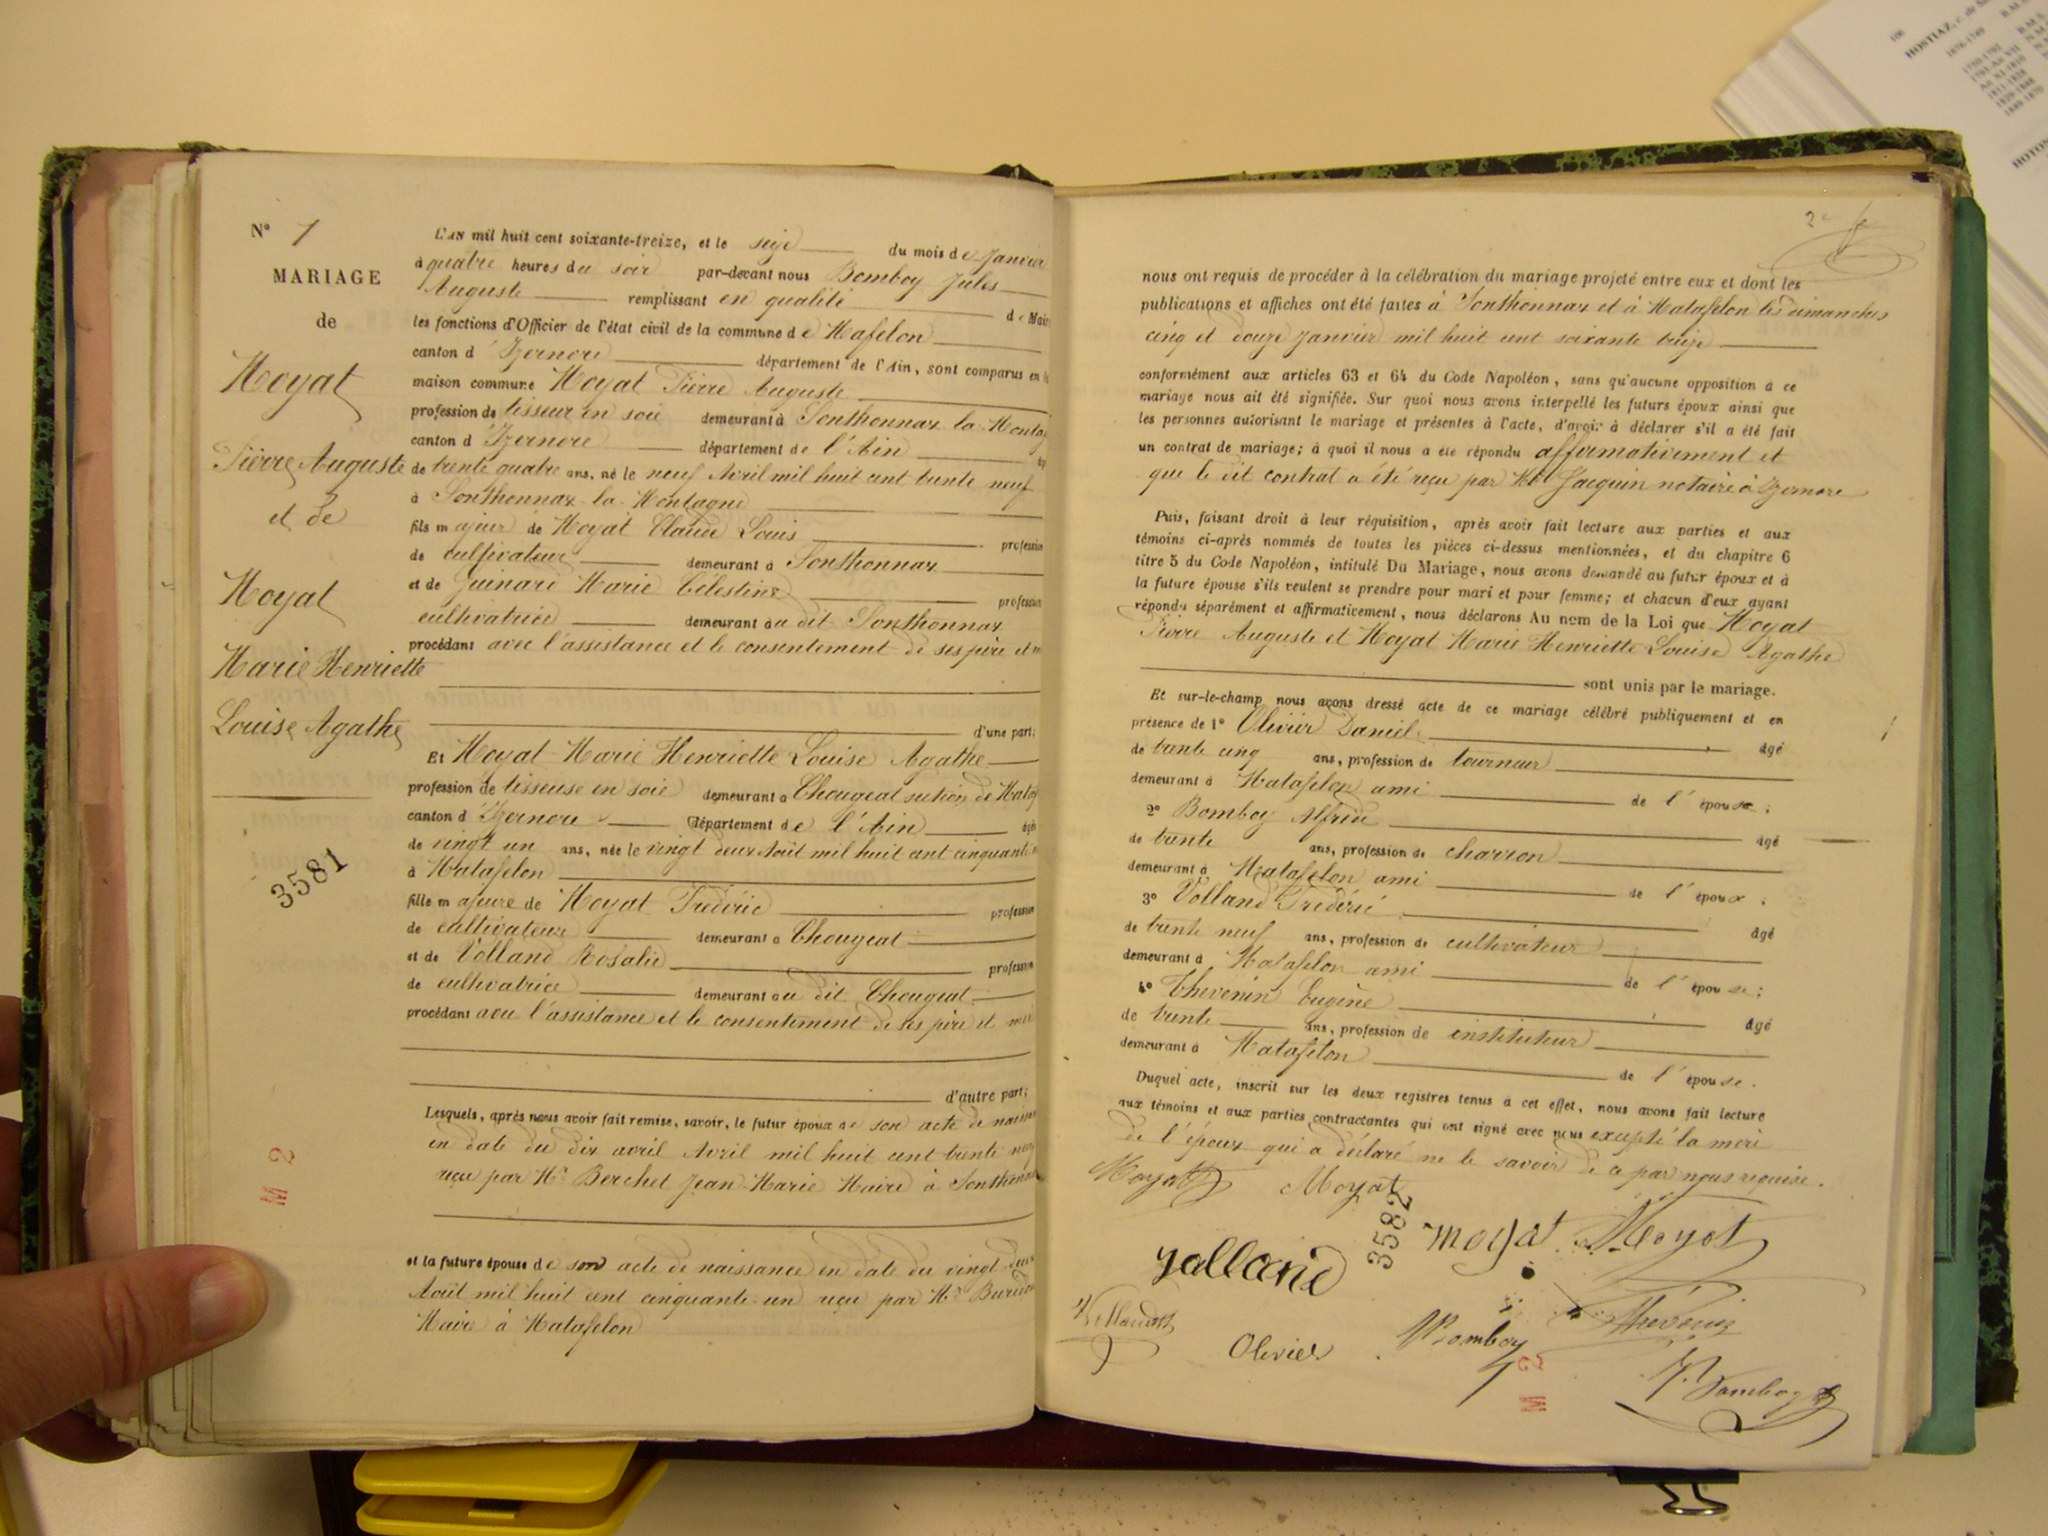 N° 1
MARIAGE
de
Moyat
Pierre Auguste
et de
Moyat
Marie Henriette
Louise Agathe
3581
L'an mil huit cent soixante-treize, et le seize du mois de Janvier
à quatre heures du soir par-devant nous Bomboy Jules
Auguste remplissant en qualité de Maire
les fonctions d'Officier de l'état civil de la commune de Mafelon
canton d'Izernore département de l'Ain, sont comparus en la
maison commune Moyat Pierre Auguste
profession de tisseur en soie demeurant à Sonthonnax la Monta
canton d'Izernore département de l'Ain
de trente quatre ans, né le neuf Avril mil huit cent trente neuf
à Sonthonnax la Montagne
fils majeur de Moyat Claude Louis profession
de cultivateur demeurant à Sonthonnax
et de Guinard Marie Celestine profession
cultivatrice demeurant au dit Sonthonnax
procédant avec l'assistance et le consentement de ses père et m
d'une part;
Et Moyat Marie Henriette Louise Agathe
profession de tisseuse en soie demeurant à Chougeat section de Mataf
canton d'Izernore département de l'Ain âgée
de vingt un ans, née le vingt deux Août mil huit cent cinquante
à Matafelon
fille majeure de Moyat Frédéric profession
de cultivateur demeurant à Chougeat
et de Volland Rosalie profession
de cultivatrice demeurant au dit Chougeat
procédant avec l'assistance et le consentement de ses père et mère
d'autre part;
Lesquels, après nous avoir fait remise, savoir, le futur époux de son acte de naiss
en date du dix avril Avril mil huit cent trente neuf
reçu par Mr Berchet Jean Marie Maire à Sonthonnax
et la future épouse de son acte de naissance en date du vingt deux
Août mil huit cent cinquante un reçu par Mr
Maire à Matafelon
M 2
2e
nous ont requis de procéder à la célébration du mariage projeté entre eux et dont les
publications et affiches ont été faites à Sonthonnax et à Matafelon les dimanches
cinq et douze Janvier mil huit cent soixante treize
conformément aux articles 63 et 64 du Code Napoléon, sans qu'aucune opposition a ce
mariage nous ait été signifiée. Sur quoi nous avons interpellé les futurs époux ainsi que
les personnes autorisant le mariage et présentes à l'acte, d'avoir à déclarer s'il a été fait
un contrat de mariage; à quoi il nous a été répondu affirmativement et
que le dit contrat a été reçu par Me Jacquin notaire à Izernore
Puis, faisant droit à leur réquisition, après avoir fait lecture aux parties et aux
témoins ci-après nommés de toutes les pièces ci-dessus mentionnées, et du chapitre 6
titre 5 du Code Napoléon, intitulé Du Mariage, nous avons demandé au futur époux et à
la future épouse s'ils veulent se prendre pour mari et pour femme; et chacun d'eux ayant
répondu séparément et affirmativement, nous déclarons Au nom de la Loi que Moyat
Pierre Auguste et Moyat Marie Henriette Louise Agathe
sont unis par le mariage.
Et sur-le-champ nous avons dressé acte de ce mariage célébré publiquement et en
présence de 1° Olivier Daniel âgé
de trente cinq ans, profession de tourneur
demeurant à Matafelon ami de l'épouse;
2° Bomboy Alfred âgé
de trente ans, profession de charron
demeurant à Matafelon ami de l'époux;
3° Volland Frédéric âgé
de trente neuf ans, profession de cultivateur
demeurant à Matafelon ami de l'épouse;
4° Thevenin Eugène âgé
de trente ans, profession de instituteur
demeurant à Matafelon de l'épouse.
Duquel acte, inscrit sur les deux registres tenus à cet effet, nous avons fait lecture
aux témoins et aux parties contractantes qui ont signé avec nous excepté la mère
de l'époux qui a déclaré ne le savoir de ce par nous requise.
Moyat Moyat
3582
moyat Moyat
Volland
Thévenin
Olivier Bomboy
J. Bomboy
M 2
106
HOSTIAZ, c. de